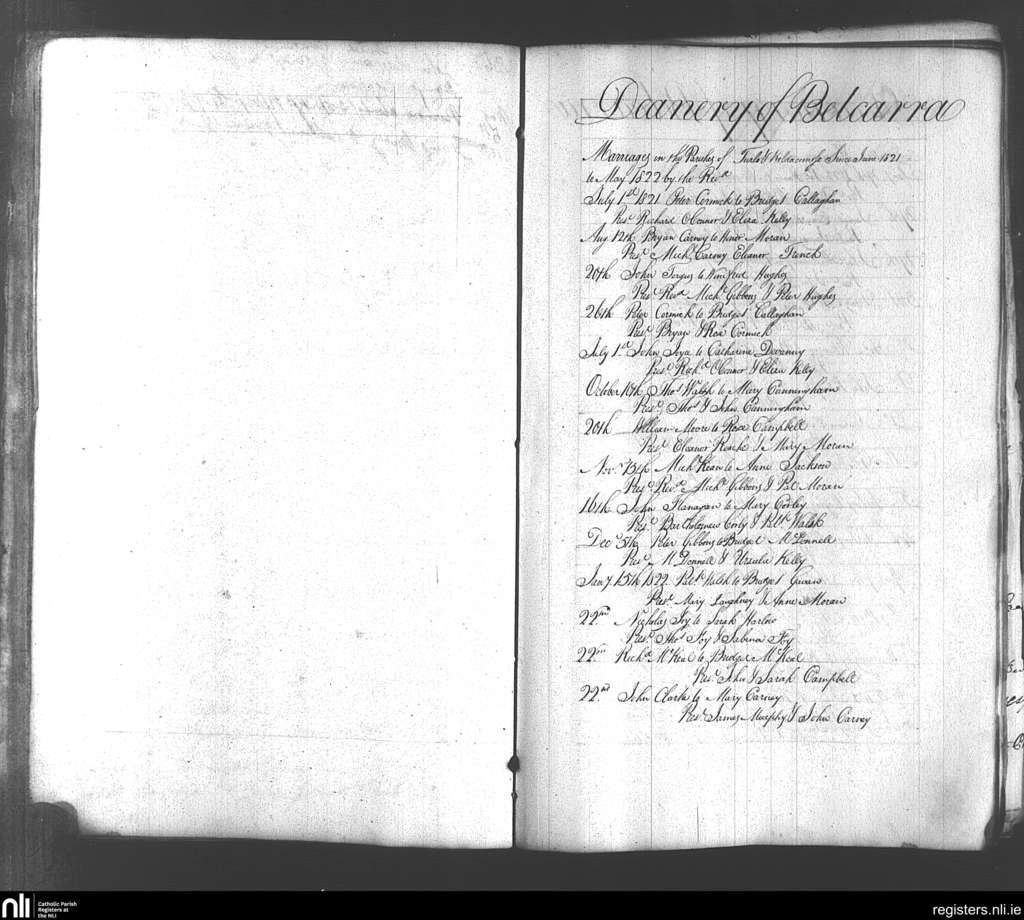 Deanery of Belcarra
Marriages in the Parishes of Turlo & Since June 1821
to May 1822 by the Revd
July 1st 1821 Peter Cormick to Bridget Callaghan
Prest Richard O'Connor & Eliza Kelly
Aug 12th Bryan Carney to Honor Moran
Prest Michl Carney Eleanor French
20th John Fergus to Winifred Hughes
Prest Revd Michl Gibbons & Peter Hughes
26th Peter Cormick to Bridget Callaghan
Prest Bryan & Rose Cormick
July 1st John to Catharine Devanny
Prest Richd O'Connor & Eliza Kelly
October Thos Walsh to Mary Cunningham
Prest Thos & John Cunningham
20th William Moore to Rose Campbell
Prest Eleanor Roach & Mary Moran
Novr 13th Michl Kean to Anne Jackson
Prest Revd Michl Gibbons & Pat Moran
16th John Flanagan to Mary Corley
Prest Bartholomew Corly & Patk Walsh
Decr 5th Peter Gibbons to Bridget McDonnell
Prest McDonnell & Ursula Kelly
Jany 15th 1822 Patk Walsh to Bridget Gavan
Prest Mary Loughney & Anne Moran
22nd Nicholas Joy to Sarah Harlow
Prest Thos Joy & Sabina Joy
22nd Richd McHeal to Bridget McHeal
Prest John & Sarah Campbell
22nd John Clarke to Mary Carney
Prest James Murphy & John Carney
nli Catholic Parish
Registers at
the NLI
registers.nli.ie